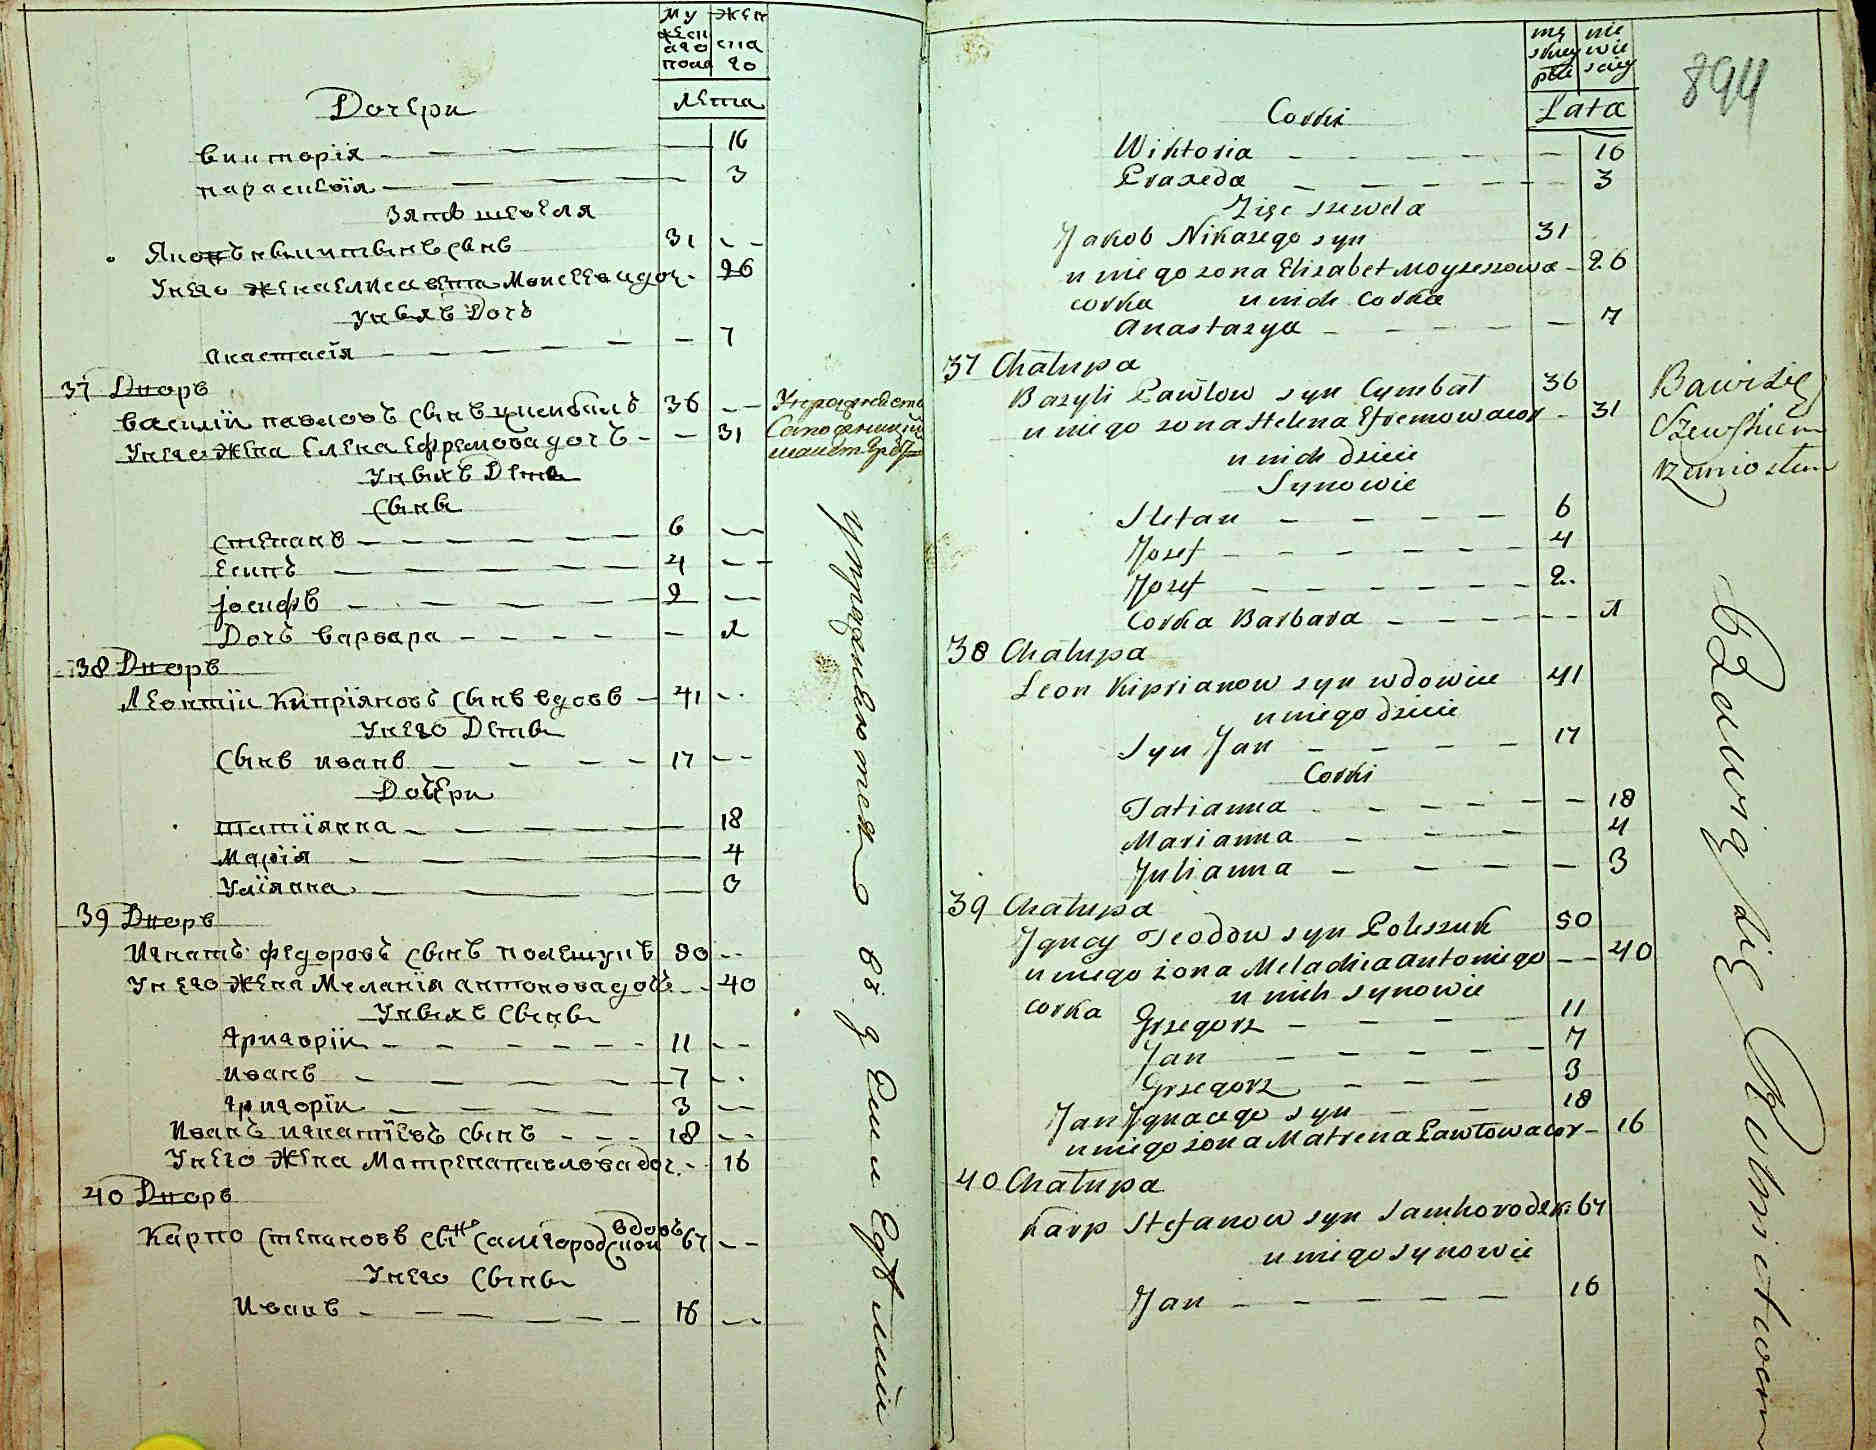 Му жеска го пола
жен ска го
лета
Дочери
викторія 16
параскевїя 3
Зять шевеля
Яковъ никитинъ сынъ 31
У него жена елисавета Моисеева доч. 26
у ныхъ Дочь
Анастасїя 7
37 Дворъ
Василїй павловъ сынъ цимбалъ 36
У него жена Елена Ефремова дочъ 31
У ныхъ Дети
Сыны
Степанъ 6
Есипъ 4
Іосифъ 2
Дочъ варвара 1
38 Дворъ
Леонтїй Кипрїяновъ сынъ вдовъ 41
У него Дети
Сынъ иванъ 17
Дочери
татїянна 18
Марїя 4
Улїянна 3
39 Дворъ
Игнатъ федоровъ сынъ полещукъ 50
У него жена Меланїя антонова дочъ 40
У ныхъ Сыны
Григорїй 11
иванъ 7
григорїй 3
Иванъ игнатїевъ сынъ 18
У него жена Матрена павлова доч. 16
40 Дворъ
Карпо Степановъ сынъ Самгородский вдовъ 67
У него Сыны
Иванъ 16
Упражняется
Сапожницкимъ
упражняются въ
mę skiey płci
nie wie sciey
Lata
894
Corki
Wiktoria 16
Praxeda 3
Zięc szewela
Jakob Nikazego syn 31
u niego zona Elizabet Moyzeszowa 26
corka u nich Corka
Anastazya 7
37 Chałupa
Bazyli Pawłow syn Cymbał 36
u niego zona Helena Efremowa cor 31
u nich dzieci
Synowie
Stefan 6
Jozef 4
Jozef 2.
Corka Barbara 1
38 Chałupa
Leon Kiprianow syn wdowiec 41
u niego dzieci
Syn Jan 17
Corki
Tatianna 18
Marianna 4
Julianna 3
39 Chałupa
Jgnacy Teodow syn Poleszuk 50
u niego żona Melachia antoniego 40
corka u nich synowie
Grzegorz 11
Jan 7
Grzegorz 3
Jan Jgnacego syn 18
u niego zona Matrena Pawłowa cor 16
40 Chałupa
Karp Stefanow syn Samhorodzk: 67
u niego synowie
Jan 16
Bawi się
Szewskiem
rzemiosłem
Bawią się Rolnictwem